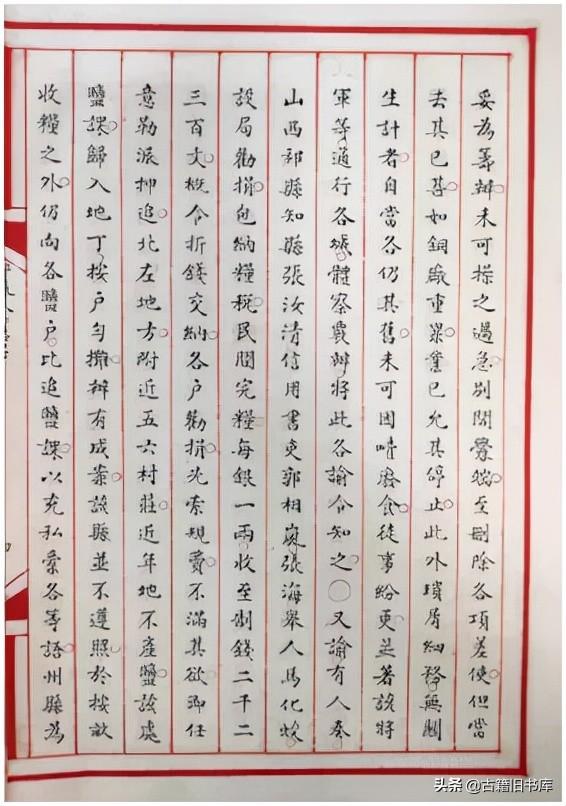 妥為籌辦未可操之過急別開釁端至刪除各項差使但當
去其已甚如銅廠重累業已允其停止此外瑣屑細務無關
生計者自當各仍其舊未可因噎廢食徒事紛更並著該將
軍等通行各城體察覈辦將此各諭令知之○又諭有人奏
山西祁縣知縣張汝清信用書吏郭相張海舉人馬化蛟
設局勸捐包納糧稅民間完糧每銀一兩收至制錢二千二
三百文概令折錢交納各戶勸捐先索規費不滿其欲即任
意勒派押追北左地方附近五六村莊近年地不產鹽該處
鹽課歸入地丁按戶勻攤辦有成案該縣並不遵照於按畝
收糧之外仍向各鹽戶比追鹽課以充私橐各等語州縣為
头条 @古籍旧书库